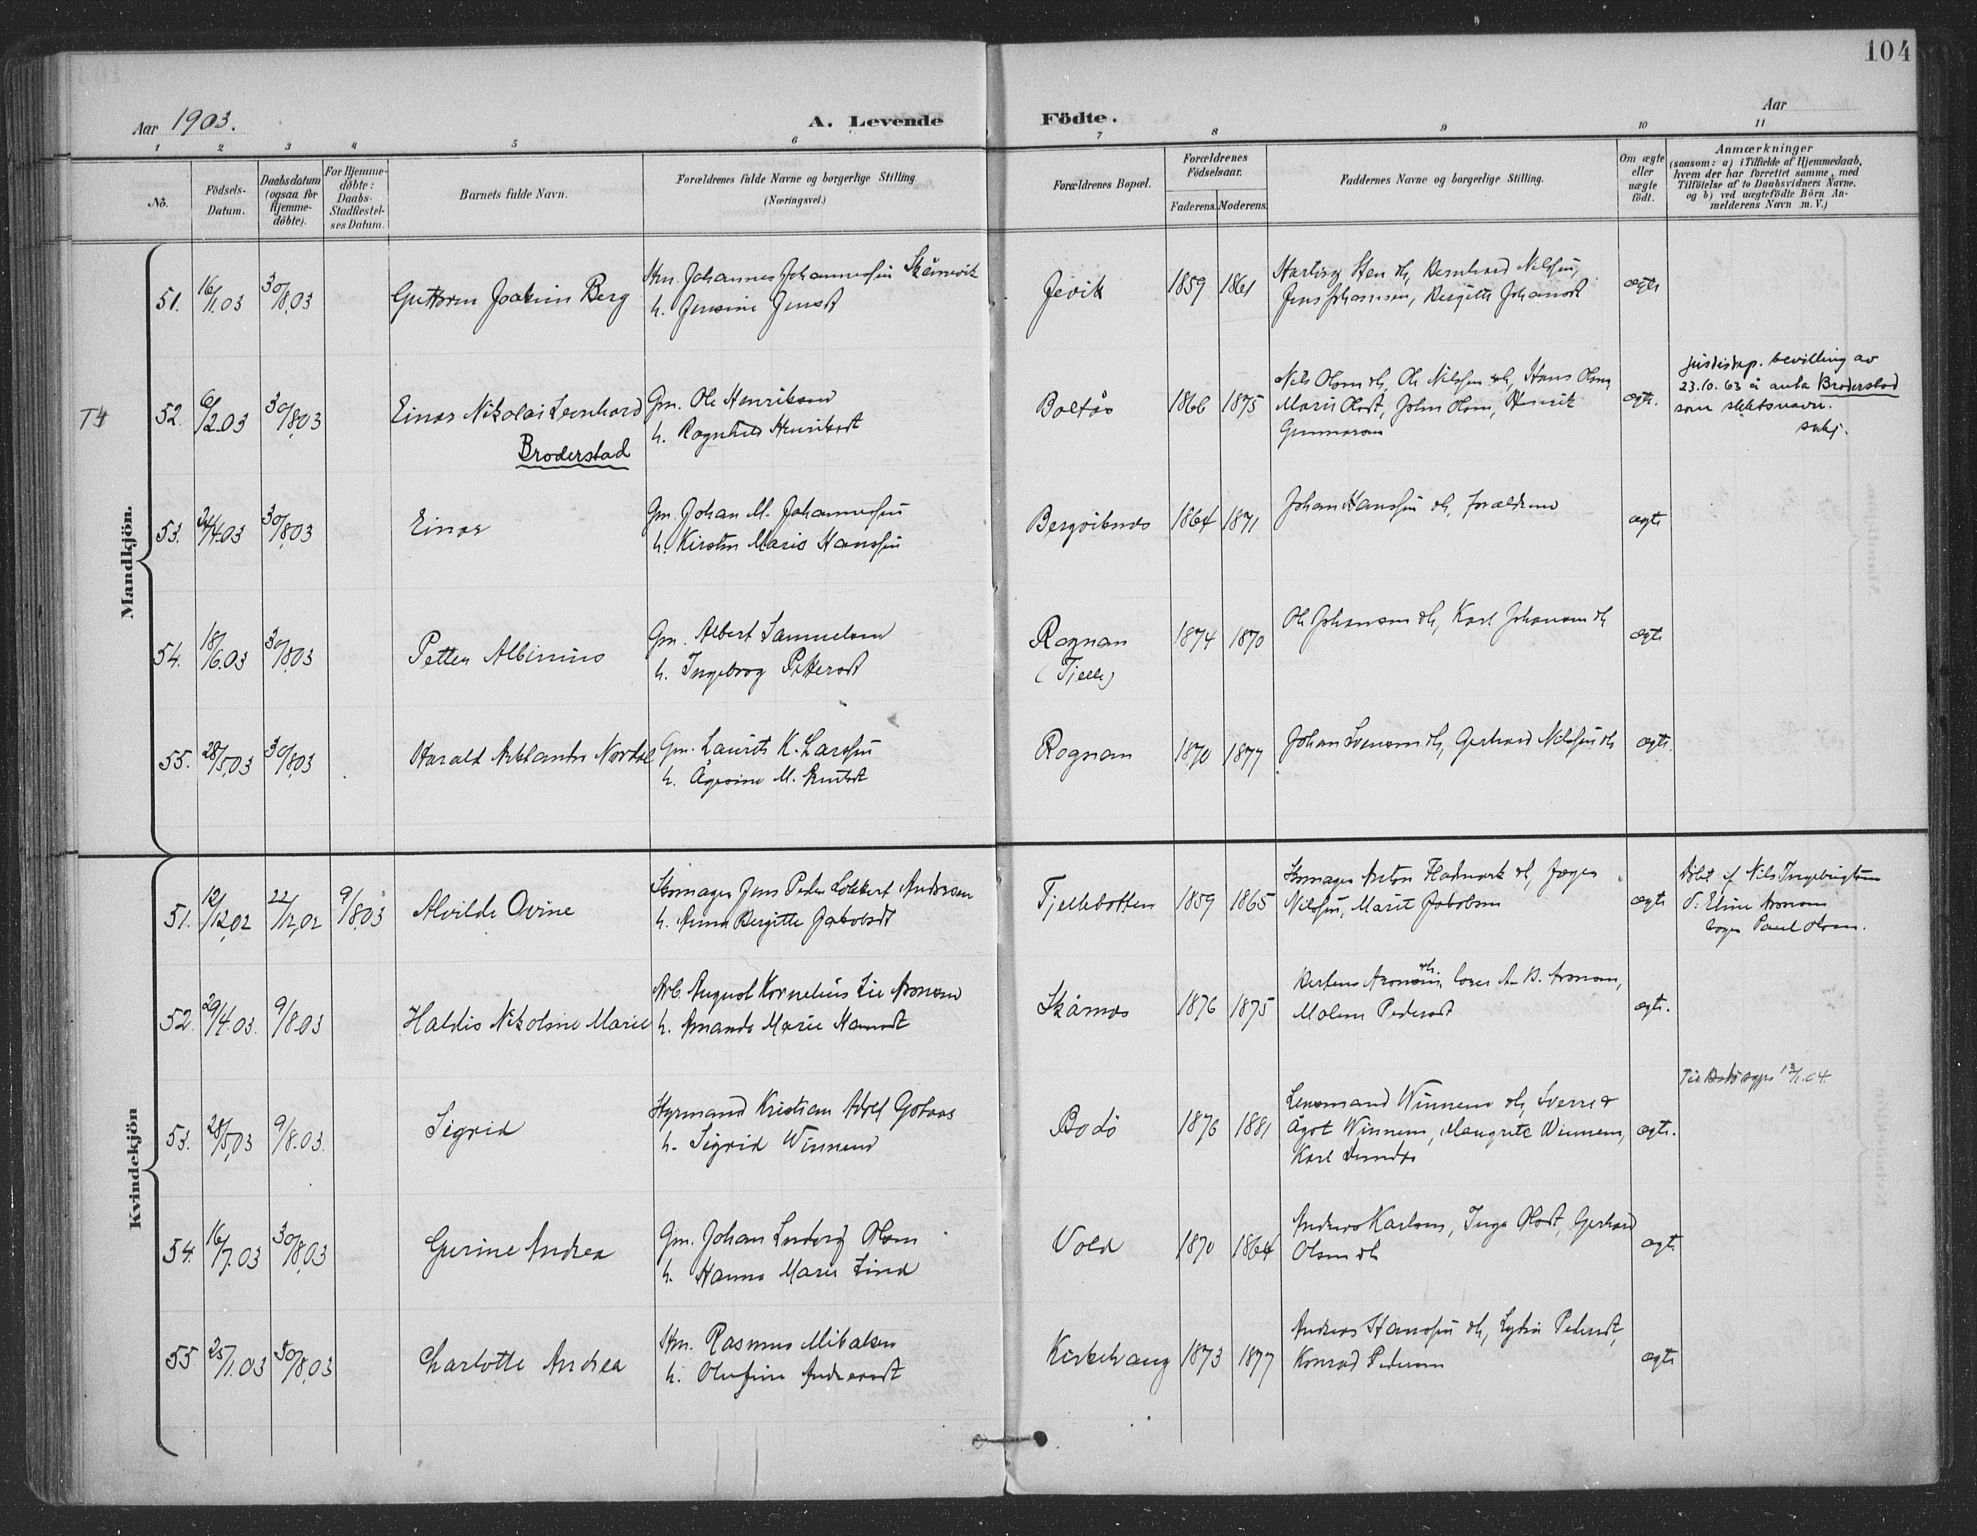 104
Aar 1903.
A. Levende Födte.
Aar
1 2 3 4 5 6 7 8 9 10 11
No.
Födsels-
Datum.
Daabsdatum
(ogsaa for
Hjemme-
döbte).
For Hjemme-
döbte:
Daabs-
Stadfæstel-
ses Datum.
Barnets fulde Navn.
Forældrenes fulde Navne og borgerlige Stilling
(Næringsvei.)
Forældrenes Bopæl.
Forældrenes
Födselsaar.
Faderens. Moderens.
Faddernes Navne og borgerlige Stilling.
Om ægte
eller
uægte
födt.
Anmærkninger
(saasom: a) i Tilfælde af Hjemmedaab,
hvem der har forrettet samme, med
Tilföielse af to Daabsvidners Navne.
og b) ved uægtefödte Börn An-
melderens Navn m. V.)
Mandkjön.
51. 16/1.03 30/8.03 Guttorm Joakim Berg
Johannes Johannessen Skåmvik
h. Jensine Jensd
Jevik 1859 1861
Hartvig Steen oh, Bernhard Nilssen,
Jens Johansen, Bergitte Johansd
ægte
T4
52. 6/2.03 30/8.03 Einar Nikolai Leonhard
Broderstad
Gm. Ole Henriksen
h. Ragnhild Henriksdt
Boltås 1866 1875
Nils Olsen oh, Ole Nilssen oh, Hans Olsen,
Marie Olsdt, John Olsen, Henrik
Gunnarsen
ægte.
justisdep. bevilling av
23.10.63 å anta Broderstad
som slektsnavn.
53. 24/4.03 30/8.03 Einar
Gm. Johan M. Johannessen
h. Kirsten Marie Hanssen
1864 1871
Johan Hanssen oh, forældrene
ægte
54. 18/6.03 30/8.03 Petter Albinius
Gm. Albert Samuelsen
h. Ingeborg Pettersdt
Rognan
(Tjelle)
1874 1870
Ole Johansen oh, Karl Johansen oh
ægte
55. 28/5.03 30/8.03 Harald
Gm. Laurits K. Larssen
h. Ågesine M. Knutsdt
Rognan 1870 1877
Johan Svensen oh, Gerhard Nilssen oh
ægte.
Kvindekjön
51. 12/12.02 22/12.02 9/8.03 Alvilde Ovine
Skomager Jens Peder Lokkert Andersen
h. Anna Bergitte Jakobsdt
Tjellebotten 1859 1865
Skomager Anton Hadmark oh, Jæger
Nilssen, Maret Jakobsen
ægte
Döbt af Nils Ingebrigtsen
F: Eline Aronsen
Paul Olsen.
52. 29/4.03. 9/8.03 Haldis Nikoline Marie
Arb. August Kornelius Lie Aronsen
h. Amanda Marie Hansdt
Skårnes 1876 1875
Aronsen oh. B. Aronsen,
Malene Pedersdt
ægte.
53. 28/5.03 9/8.03. Sigrid
Styrmand Kristian Adolf Gotaas
h. Sigrid Winnem
Bodö 1876 1881
Lensmand Winnem oh, Sverre &
Ågot Winnem, Margrete Winnem,
Karl
ægte.
Til Bodö 1.04.
54. 16/7.03 30/8.03 Gurine Andrea
Gm. Johan Ludvig Olsen
h. Hanna Marie Lind
Vold 1870 1864
Andreas Karlsen, Inga Olsdt, Gerhard
Olsen oh
ægt.
55 25/1.03 30/8.03 Charlotte Andrea
Rasmus Mikalsen
h. Olufine Andreasdt
Kirkehaug 1873 1877
Andreas Hanssen oh, Lydia Pedersdt,
Konrad Pedersen
ægte